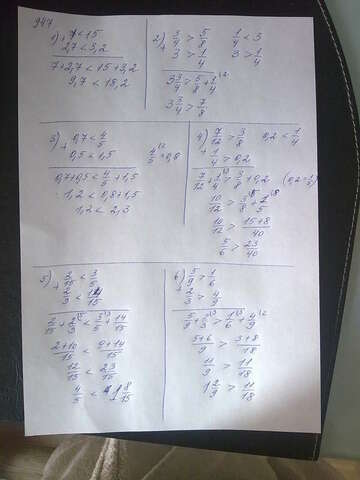 947
1) + 7 < 15
2,7 < 3,2
7+2,7 < 15+3,2
9,7 < 18,2
2) + 3/4 > 5/8   1/4 < 3
3 > 1/4   3 > 1/4
3 3/4 > 5/8 + 1/4 \2
3 3/4 > 7/8
3) + 0,7 < 4/5
0,5 < 1,5   4/5 \2 = 0,8
0,7+0,5 < 4/5 + 1,5
1,2 < 0,8+1,5
1,2 < 2,3
4) + 7/12 > 3/8   0,2 < 1/4
1/4 > 0,2
7/12 + 1/4 \3 > 3/8 + 0,2   (0,2 = 1/5)
10/12 > 3/8 \5 + 1/5 \8
10/12 > 15+8/40
5/6 > 23/40
5) + 2/15 < 3/5
2/3 < 14/15
2/15 + 2/3 \5 < 3/5 \3 + 14/15
2+10/15 < 9+14/15
12/15 < 23/15
4/5 < 1 8/15
6) + 5/9 > 1/6
2/3 > 4/9
5/9 + 2/3 \3 > 1/6 \3 + 4/9 \2
5+6/9 > 3+8/18
11/9 > 11/18
1 2/9 > 11/18